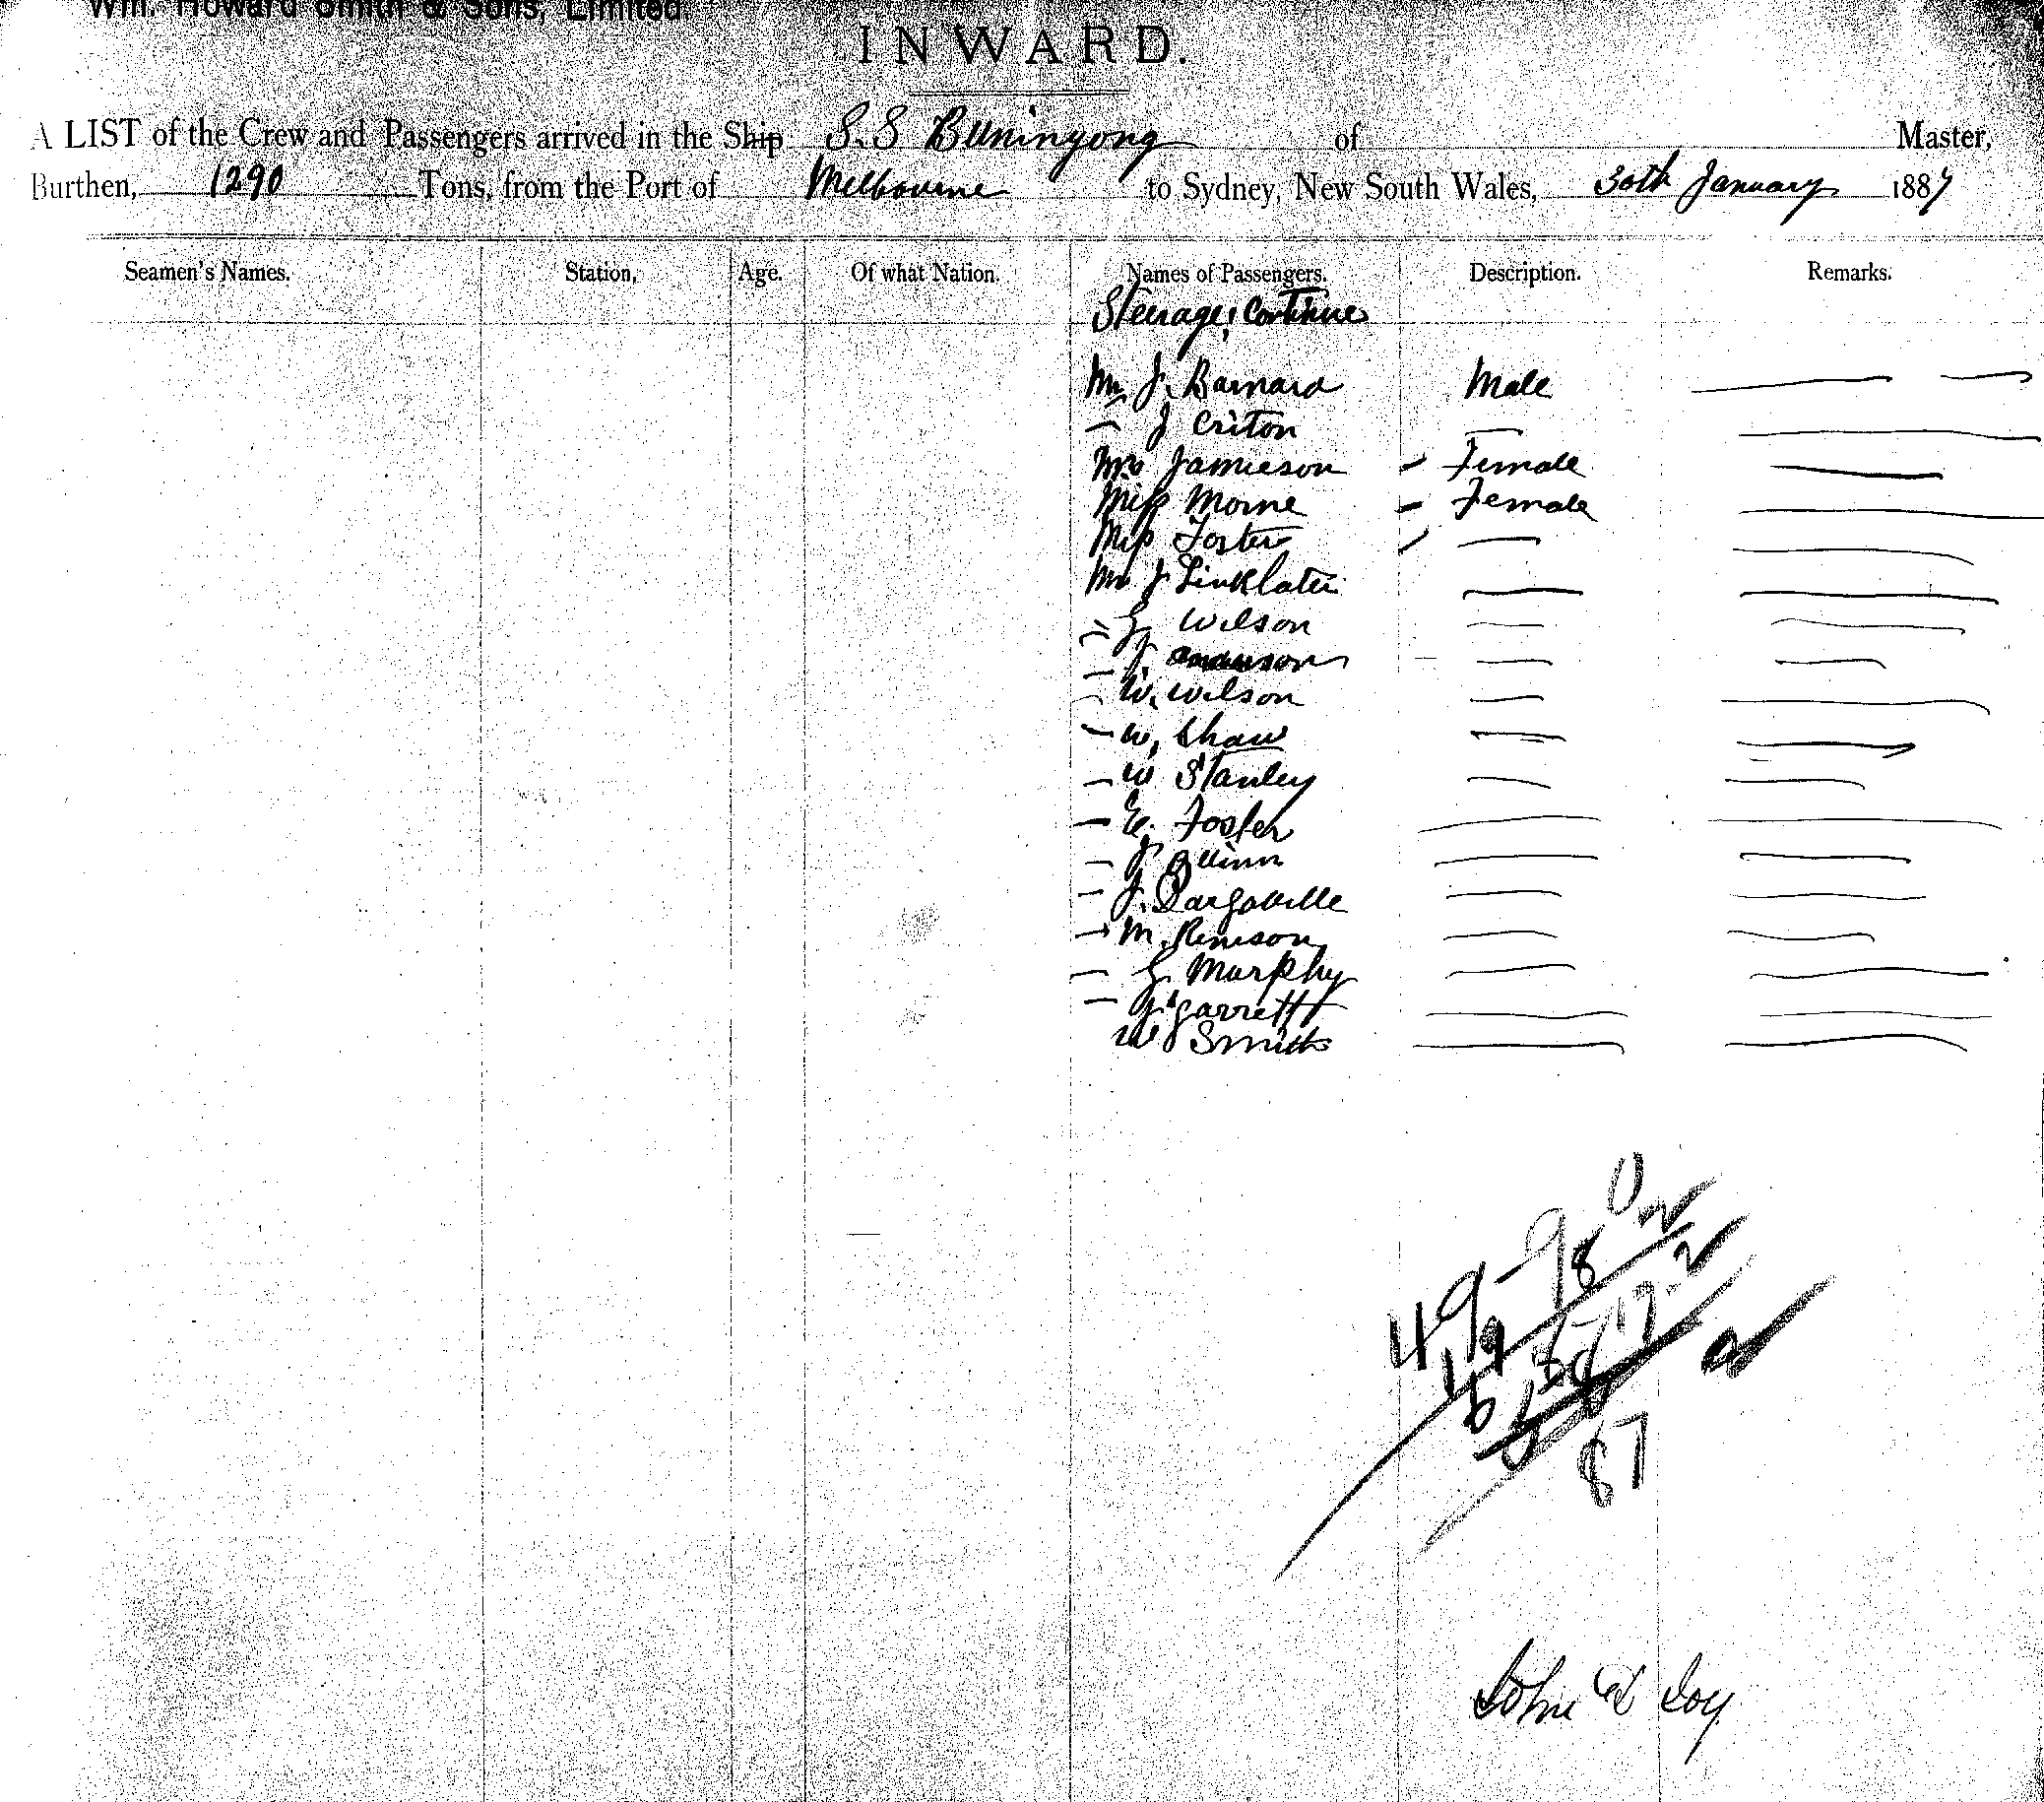 Wm. Howard Smith & Sons, Limited.
INWARD.
A LIST of the Crew and Passengers arrived in the Ship S.S Buninyong of Master,
Burthen, 1290 Tons, from the Port of Melbourne to Sydney, New South Wales, 30th January 1887
Seamen's Names. Station, Age. Of what Nation. Names of Passengers. Description. Remarks.
Steerage, Continue
Mr J. Barnard Male
J Criton
Mrs Jamieson Female
Miss Morne Female
Miss Foster
Mr J Linklater
G Wilson
J.
W. Wilson
W. Shaw
W Stanley
E. Foster
J. Quinn
J. Dargaville
M. Renison
G. Murphy
J Garrett
W Smith
87
John